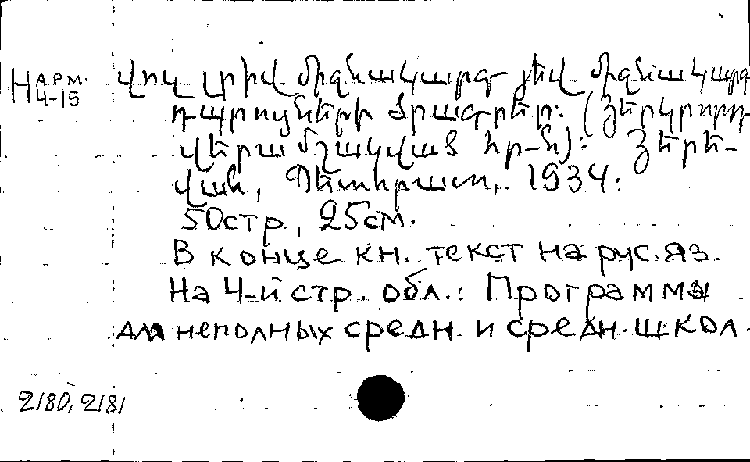 Н АРМ.
4-15
Վոչ լրիվ միջնակարգ յեվ միջնակարգ
դպրոցների ծրագրեր: (Յերկրորդ
վերամշակված հր-ն): Յերե-
վան, Պետհրատ, 1934:
50 стр., 25 см.
В конце кн. текст на рус. яз.
На 4-й стр. обл.: Программы
для неполных средн. и средн. школ.
2180, 2181